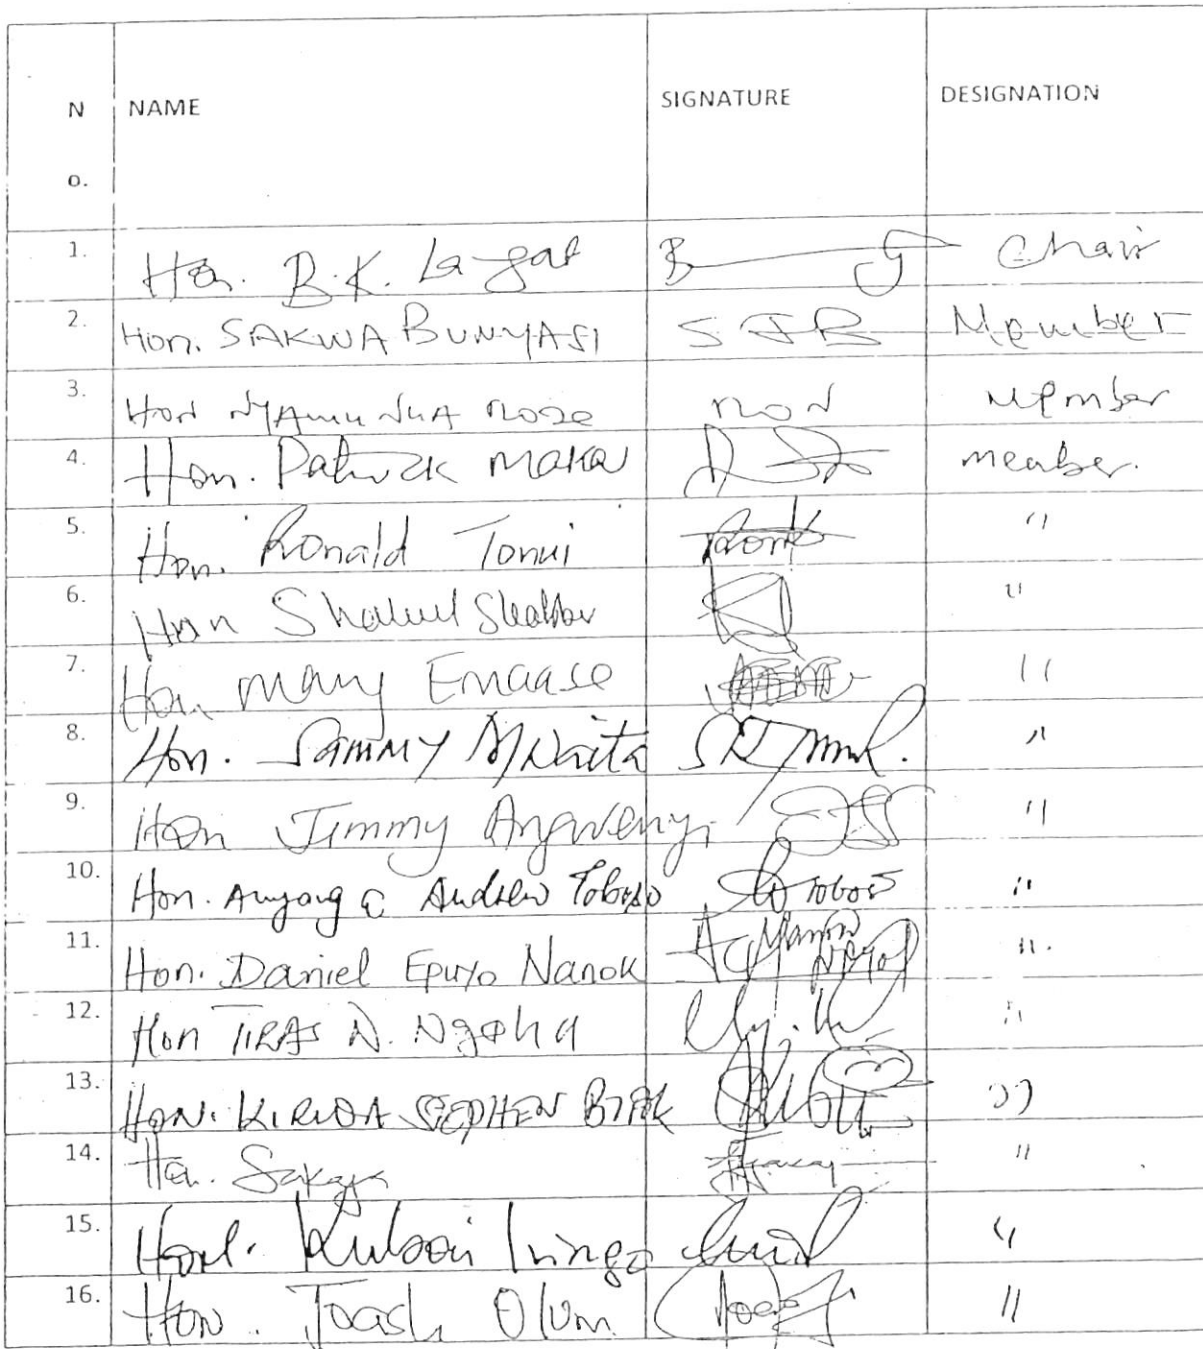 N
o.
NAME
SIGNATURE
DESIGNATION
1. Hon. B.K. Lagat Chair
2. Hon. SAKWA BUNYASI SJB Member
3. Hon NYAMUNGA ROSE RON Member
4. Hon. Patrick Makau Member.
5. Hon. Ronald Tonui "
6. Hon Shakeel Shabbir "
7. Hon. Mary Emaase "
8. Hon. Sammy Mwaita "
9. Hon Jimmy Angwenyi "
10. Hon. Anyanga Andrew Toboso "
11. Hon. Daniel Epuyo Nanok ".
12. Hon TIRAS N. Ngahu "
13. HON. KIRWA STEPHEN BITOK "
14. Hon. Sakaja "
15. Hon. "
16. Hon. Joash Olum "